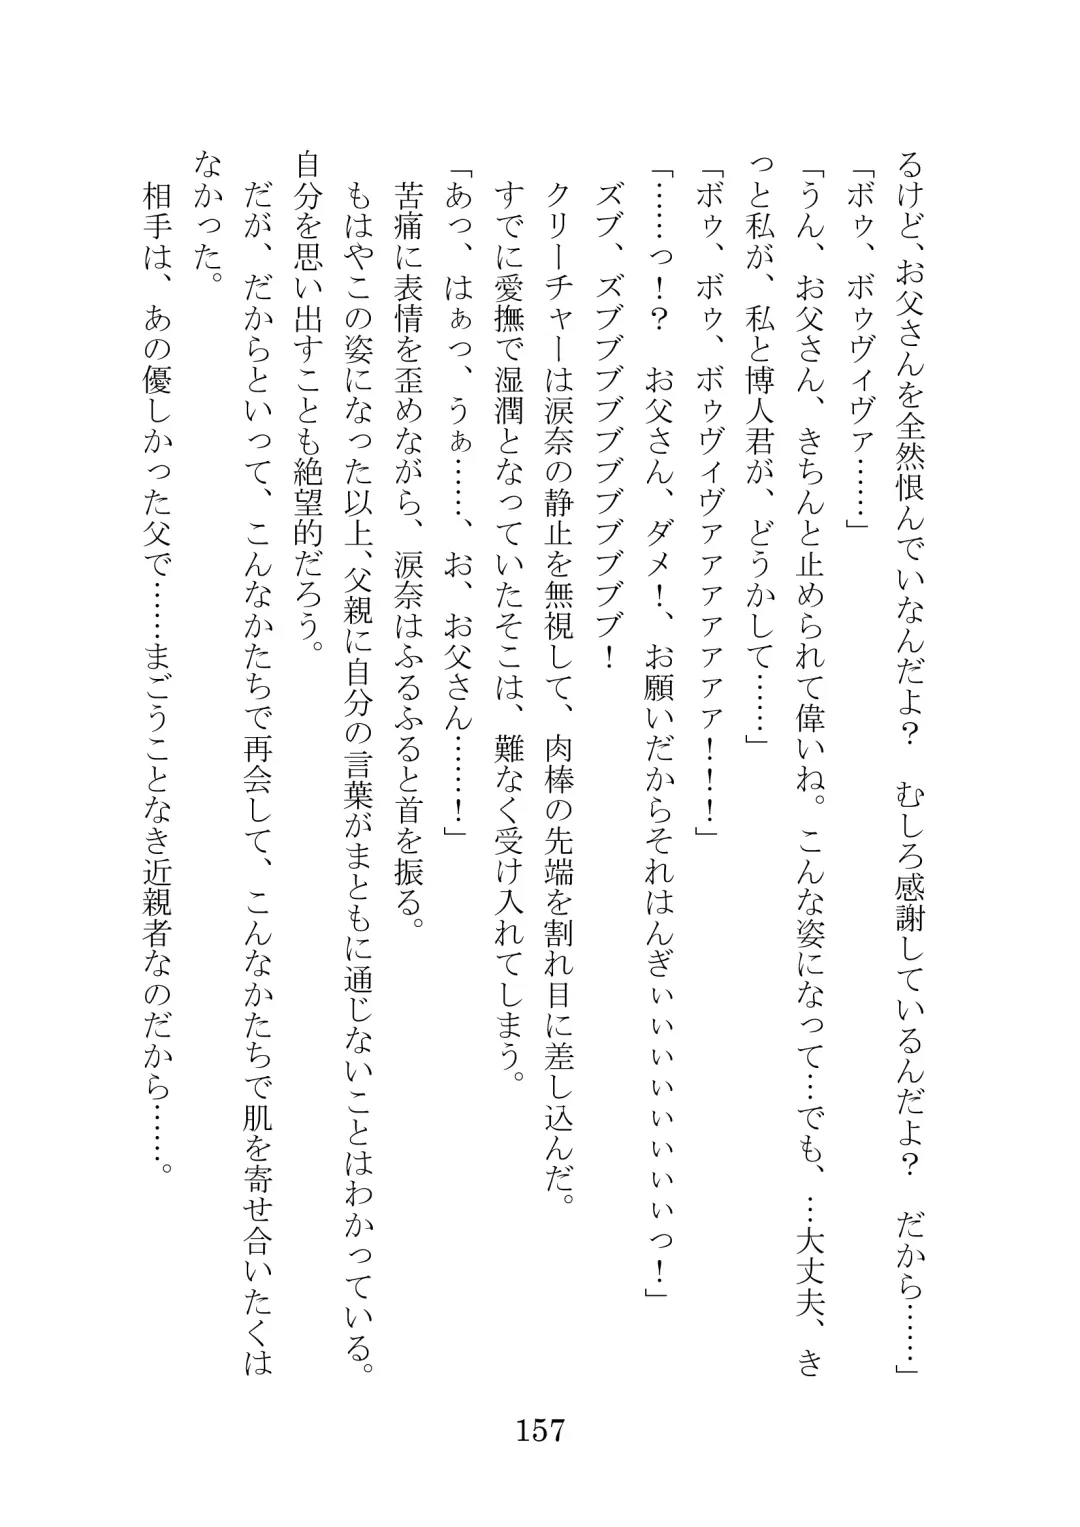 るけど、お父さんを全然恨んでいなんだよ？　むしろ感謝しているんだよ？　だから……」
「ボゥ、ボゥヴィヴァ……」
「うん、お父さん、きちんと止められて偉いね。こんな姿になって…でも、…大丈夫、き
っと私が、私と博人君が、どうかして……」
「ボゥ、ボゥ、ボゥヴィヴァァァァァァァ！！！」
「……っ！？　お父さん、ダメ！、お願いだからそれはんぎぃぃぃぃぃぃぃぃっ！」
ズブ、ズブブブブブブブブブブ！
クリーチャーは涙奈の静止を無視して、肉棒の先端を割れ目に差し込んだ。
すでに愛撫で湿潤となっていたそこは、難なく受け入れてしまう。
「あっ、はぁっ、うぁ……、お、お父さん……！」
苦痛に表情を歪めながら、涙奈はふるふると首を振る。
もはやこの姿になった以上、父親に自分の言葉がまともに通じないことはわかっている。
自分を思い出すことも絶望的だろう。
だが、だからといって、こんなかたちで再会して、こんなかたちで肌を寄せ合いたくは
なかった。
相手は、あの優しかった父で……まごうことなき近親者なのだから……。
157